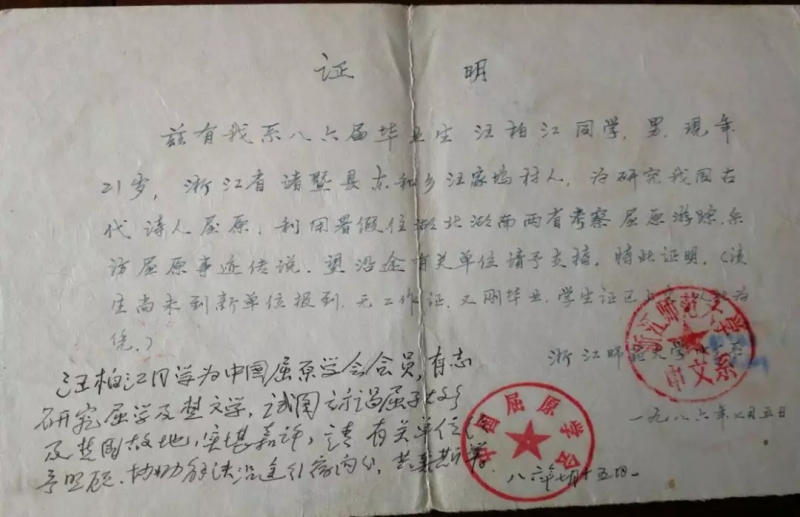 证 明
兹有我系八六届毕业生汪柏江同学，男，现年
21岁，浙江省诸暨县东和乡汪家坞村人，为研究我国古
代诗人屈原，利用暑假往湖北湖南两省考察屈原游踪，采
访屈原事迹传说，望沿途有关单位请予支持，特此证明。（该
生尚未到新单位报到，无工作证，又刚毕业，学生证已
凭。）
浙江师范大学中文系
一九八六年七月五日
汪柏江同学为中国屈原学会会员，有志
研究屈学及楚文学，试图访谒屈子
及楚国故地，实堪嘉许，请有关单位
予照顾，协助解决沿途
八六年七月十五日
浙江师范大学
中文系
屈原学会